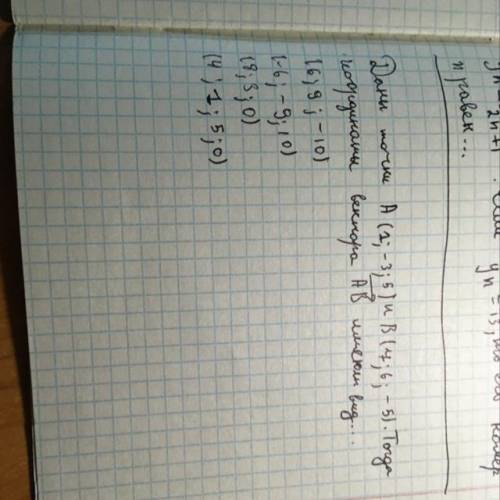 yn = 2n+1 . Если yn = 15, то его номер
n равен...
Даны точки A (1; -3; 5) и B (7; 6; -5). Тогда
координаты вектора AB имеют вид...
(6; 9; -10)
(-6; -9; 10)
(8; 3; 0)
(4; 1; 5; 0)